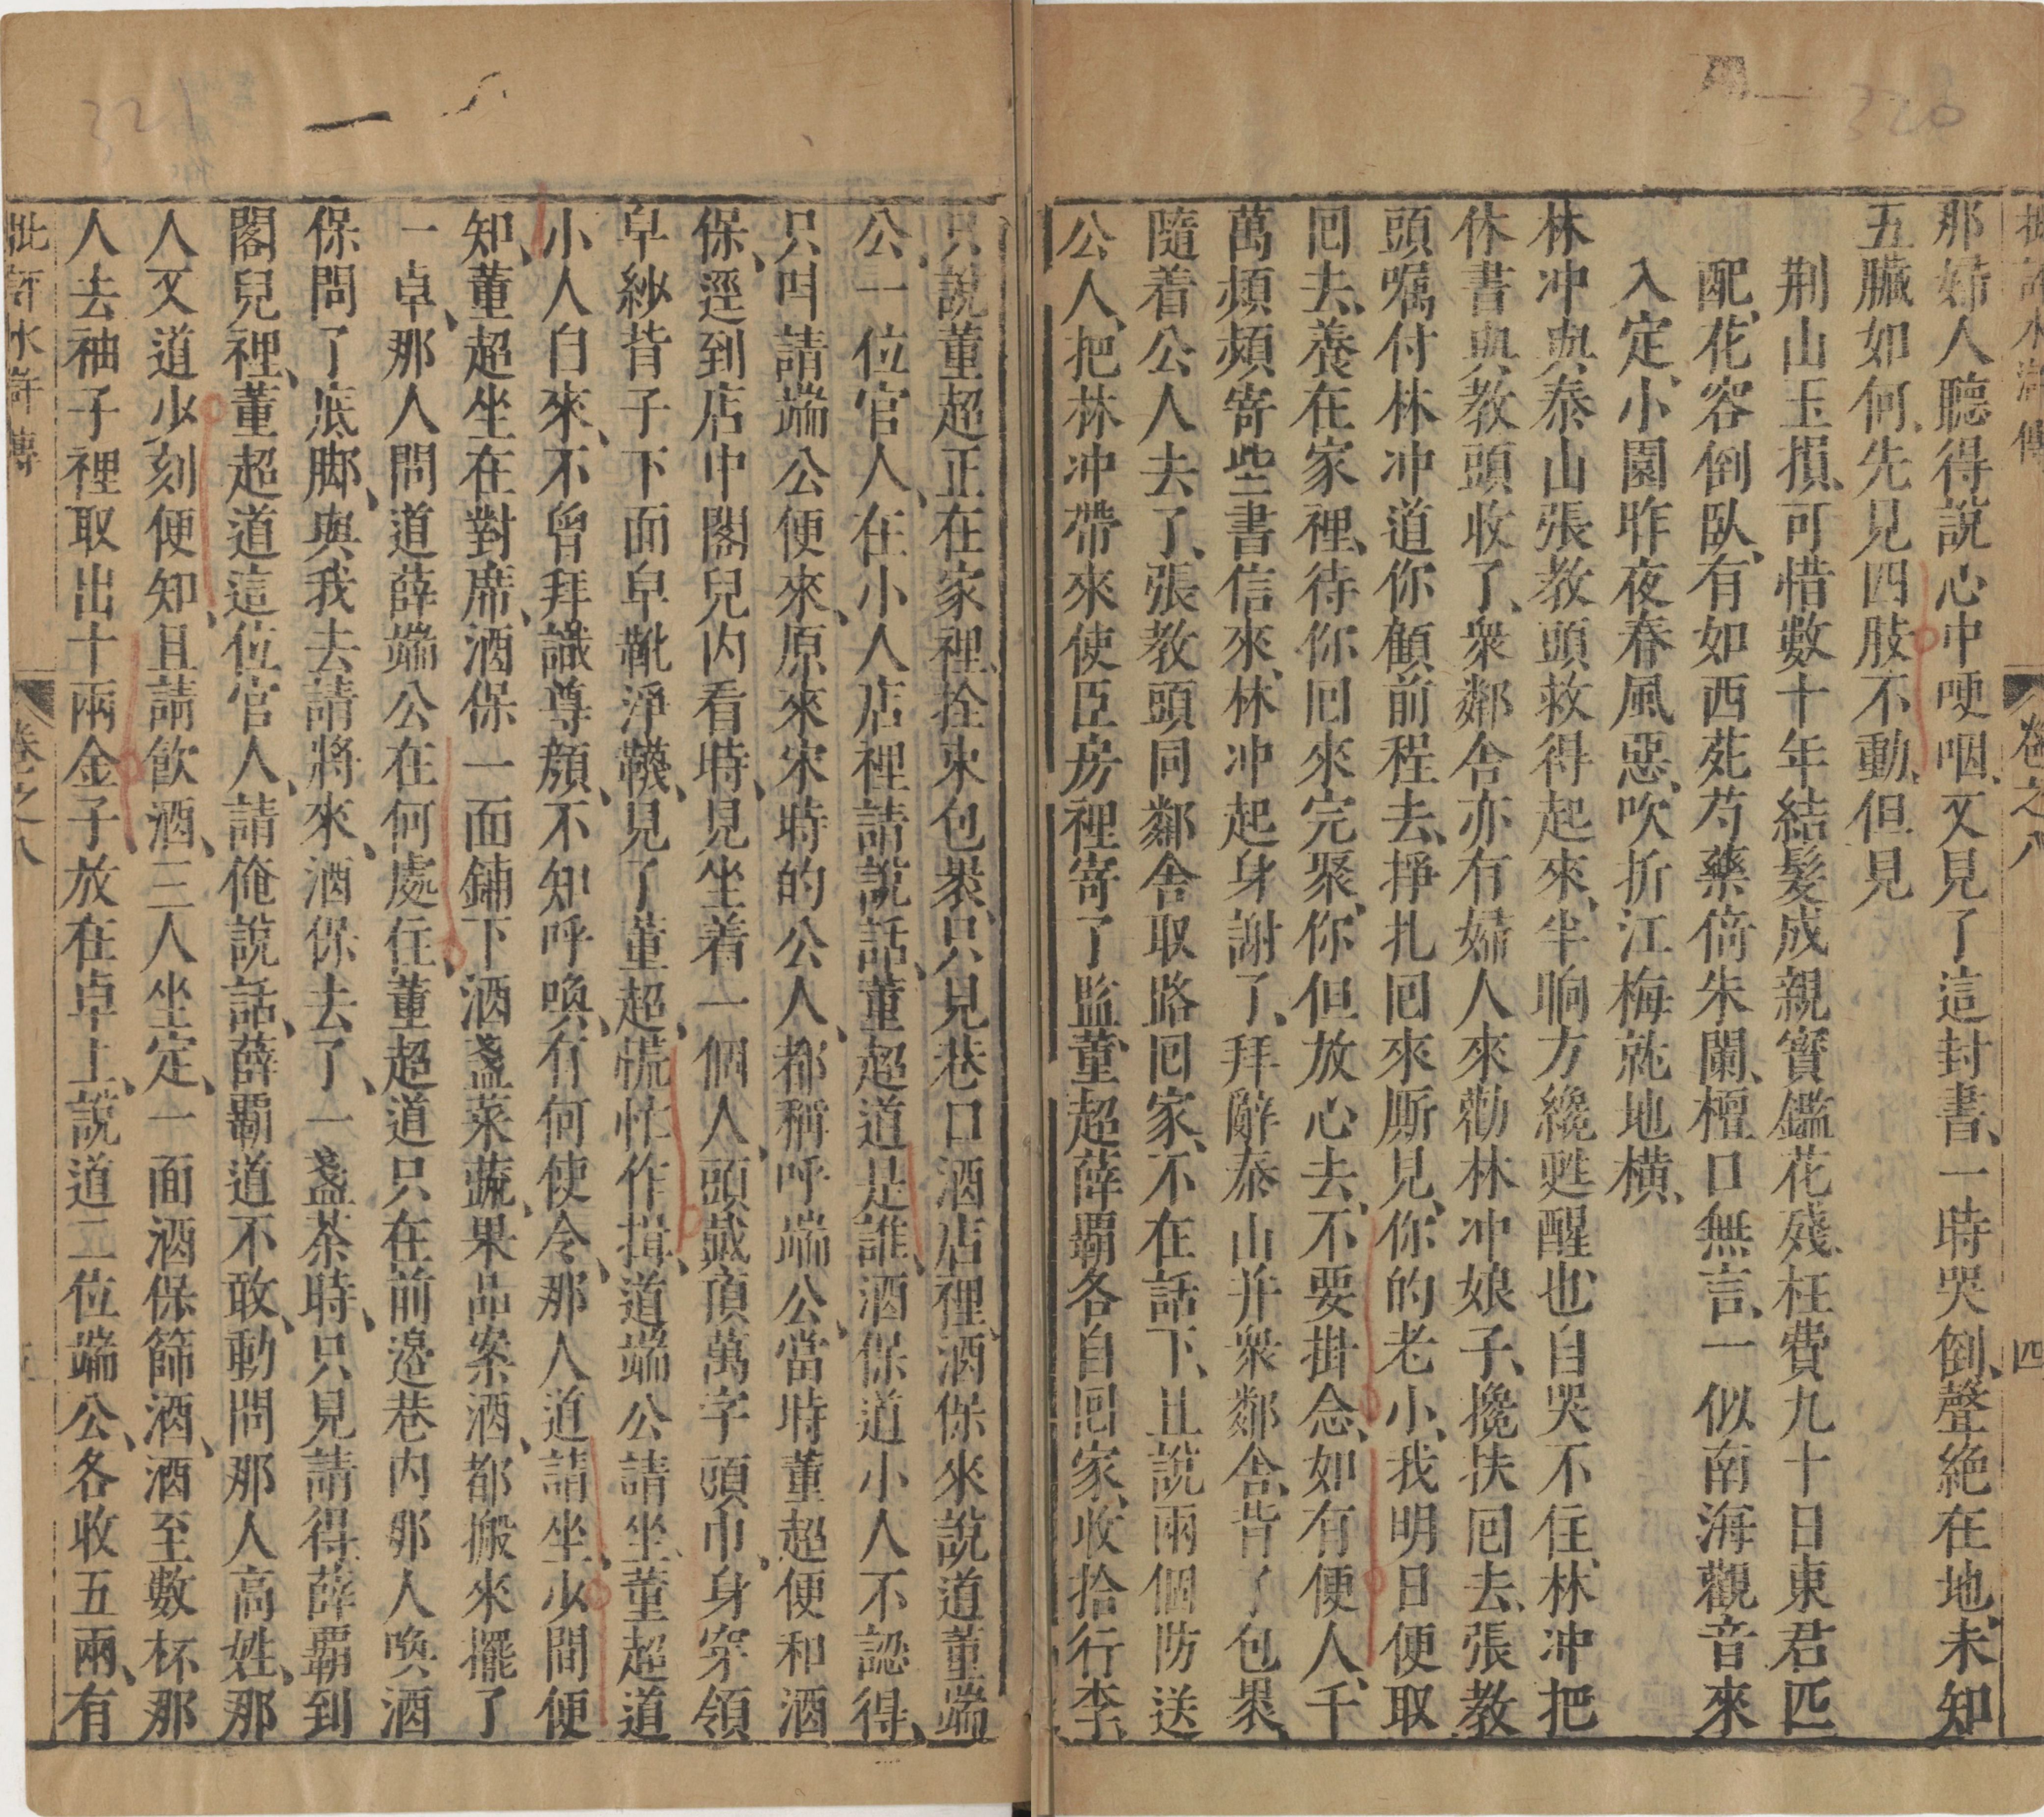 那婦人聽得說心中哽咽、又見了這封書、一時哭倒、聲絶在地、未知
五臟如何、先見四肢不動、但見
荆山玉損、可惜數十年結髮成親、寳鑑花殘、枉費九十日東君匹
配、花容倒臥、有如西苑芍藥倚朱闌、檀口無言、一似南海觀音來
入定、小園昨夜春風惡、吹折江梅就地橫、
林冲與泰山張教頭救得起來、半晌方纔甦醒也、自哭不住、林冲把
休書與教頭收了、衆鄰舍亦有婦人來勸林冲娘子、攙扶囘去、張教
頭囑付林冲道你顧前程去、掙扎囘來厮見、你的老小、我明日便取
囘去、養在家裡、待你囘來完聚、你但放心去、不要掛念、如有便人、千
萬頻頻寄些書信來、林冲起身謝了、拜辭泰山并衆鄰舍、背了包裹、
隨着公人去了、張教頭同鄰舍取路囘家、不在話下、且說兩個防送
公人、把林冲帶來使臣房裡寄了監、董超薛覇各自囘家、收拾行李、
只說董超正在家裡、拴束包裹、只見巷口酒店裡、酒保來說道董端
公、一位官人、在小人店裡請說話、董超道是誰、酒保道小人不認得、
只呌請端公便來、原來宋時的公人、都稱呼端公、當時董超便和酒
保、逕到店中閣兒内看時、見坐着一個人、頭戴頂萬字頭巾、身穿領
皁紗背子、下面皁靴淨襪、見了董超、慌忙作揖、道端公請坐、董超道
小人自來、不曾拜識尊顔、不知呼喚、有何使令、那人道請坐、少間便
知、董超坐在對席、酒保一面鋪下酒盞菜蔬、果品案酒、都搬來擺了
一卓、那人問道薛端公在何處住、董超道只在前邊巷内那人喚酒
保問了底脚、與我去請將來、酒保去了、一盞茶時、只見請得薛覇到
閣兒裡、董超道這位官人、請俺說話、薛覇道不敢、動問那人高姓、那
人又道少刻便知、且請飲酒、三人坐定、一面酒保篩酒、酒至數杯那
人去袖子裡取出十兩金子放在卓上、說道二位端公、各收五兩、有
批評水滸傳
卷之八
四